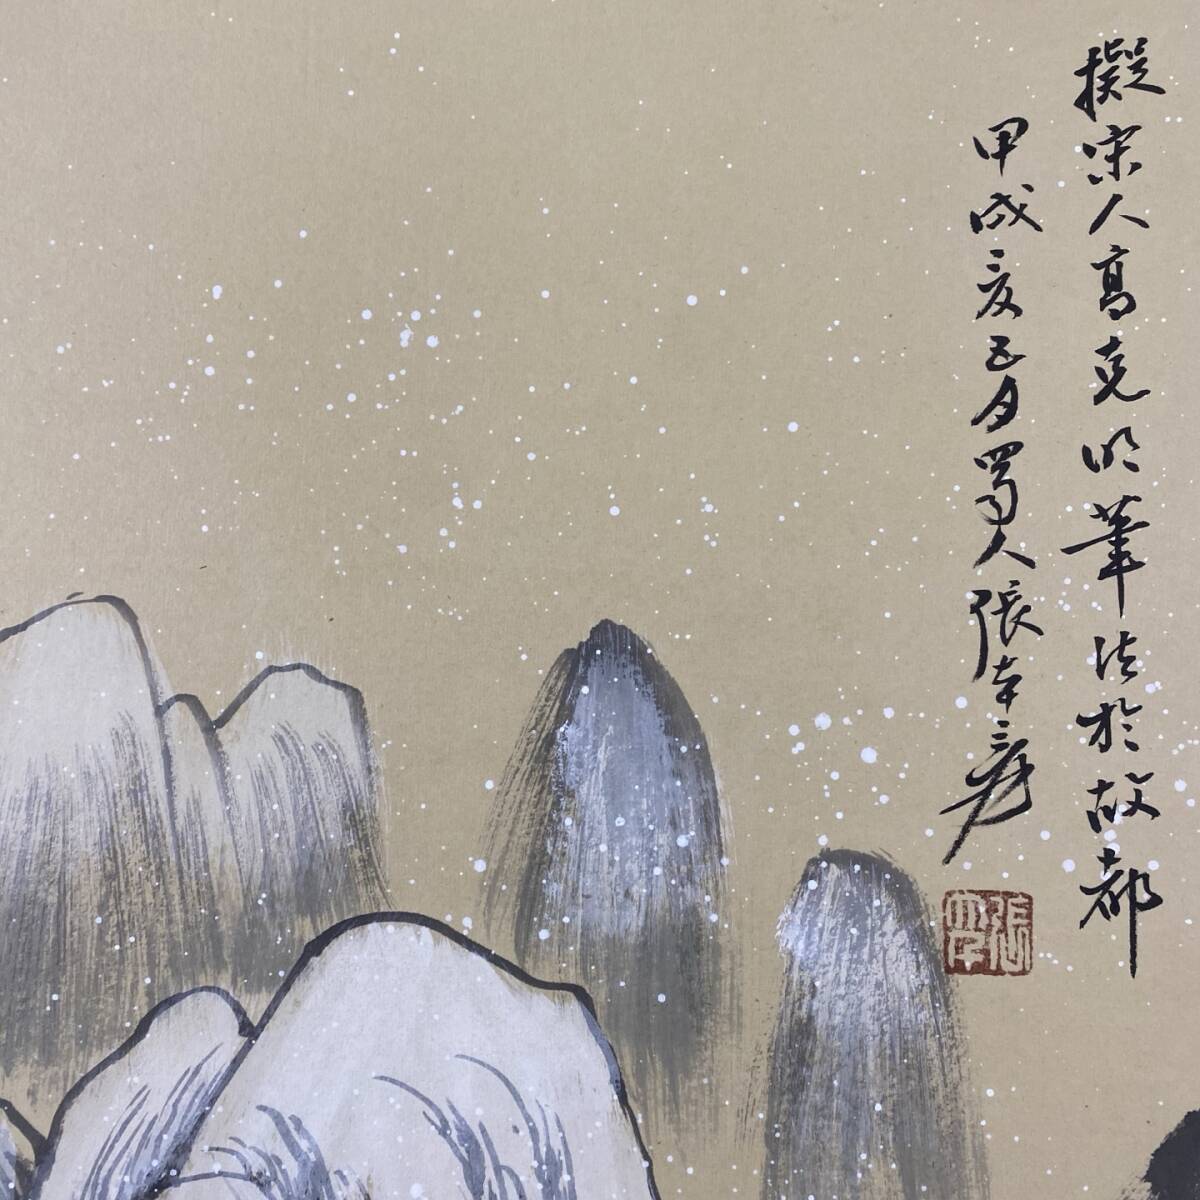 擬宋人高克明筆法於故都
甲戌夏五月蜀人張大千爰